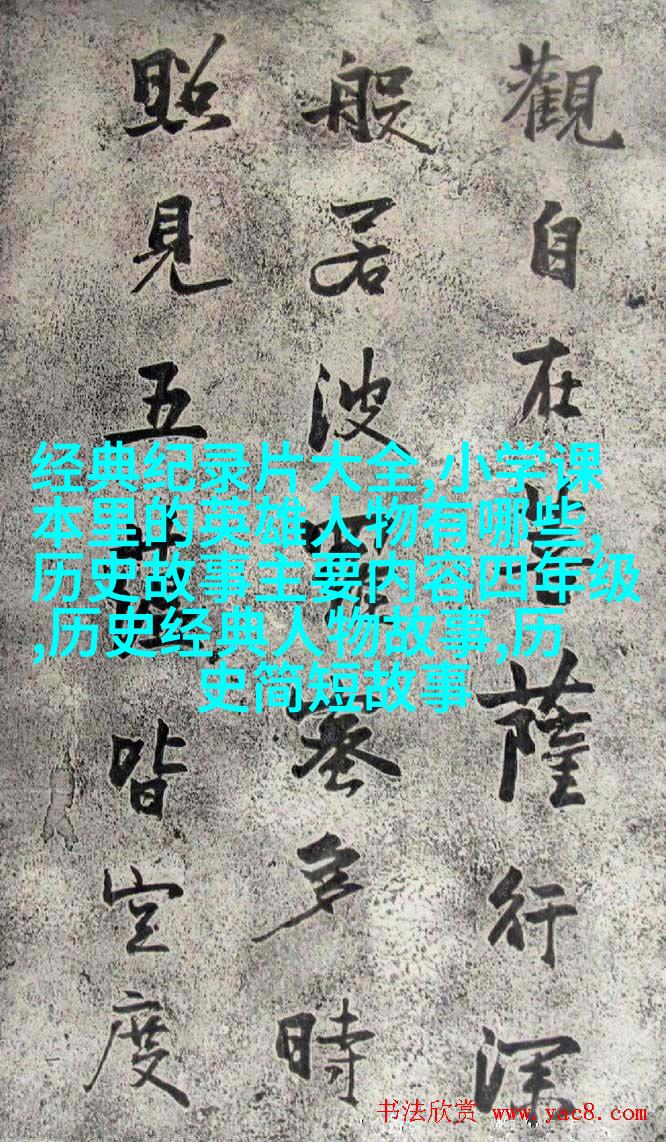 觀自在菩薩行深
般若波羅蜜多時
照見五蘊皆空度
经典纪录片大全,小学课
本里的英雄人物有哪些,
历史故事主要内容四年级
,历史经典人物故事,历
史简短故事
书法欣赏 www.yac8.com